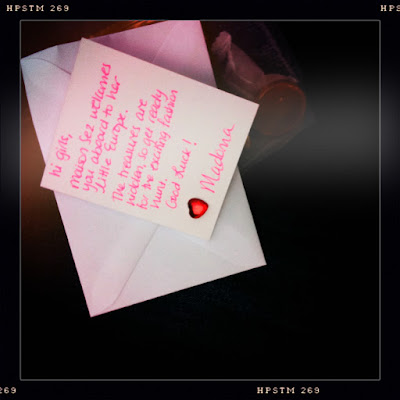 HPSTM 269
HPSTM
hi girls,
maison Sez welcomes
you aboard to her
little Europe.
The treasures are
hidden, so get ready
for the exciting fashion
hunt.
Good Luck!
Madona
269
HPSTM 269